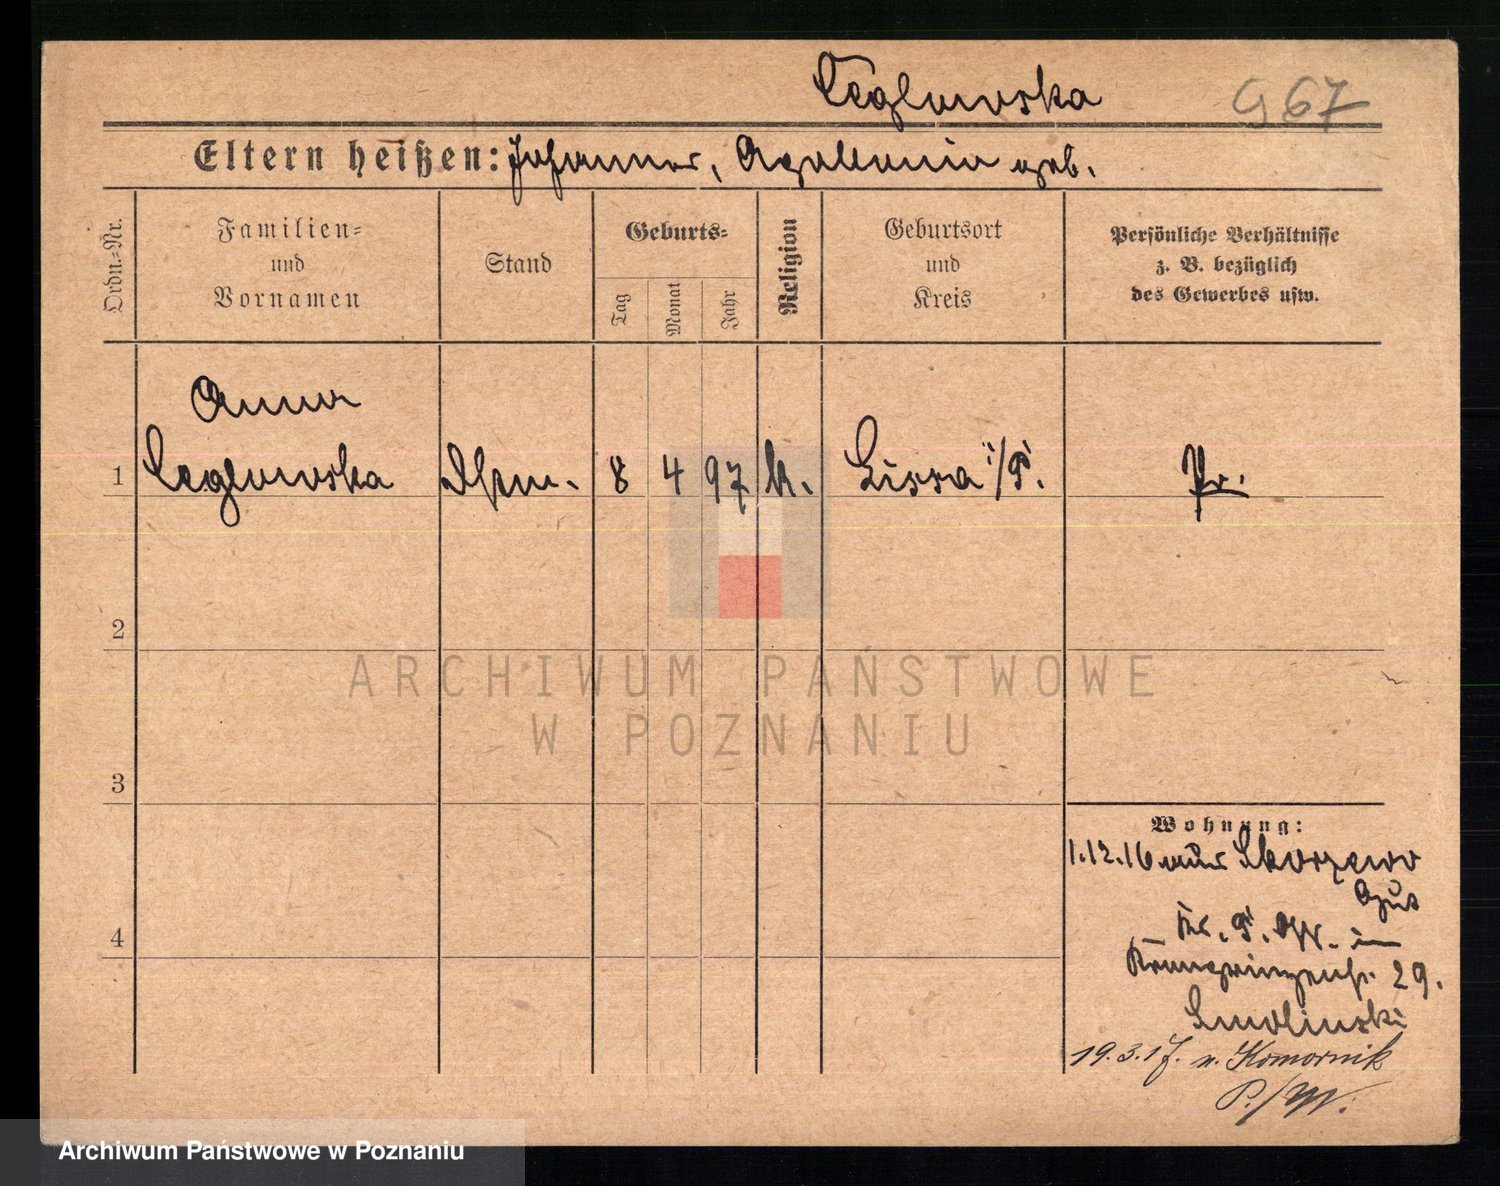 Ceglowska
967
Eltern heißen: Johannes, Apollonia geb.
Ordn.=Nr.
Familien=
und
Vornamen
Stand
Geburts=
Tag
Monat
Jahr
Religion
Geburtsort
und
Kreis
Persönliche Verhältnisse
z. B. bezüglich
des Gewerbes usw.
Anna
1 Ceglowska 8 4 97 k. Lissa i/P. Pr.
2
3
4
Wohnung:
1.12.16 aus Skorzewo
Gut
Kr. P. W. in
Kronprinzenstr. 29.
Smolinski
19.3.17. n. Komornik
P./W.
ARCHIWUM PAŃSTWOWE
W POZNANIU
Archiwum Państwowe w Poznaniu